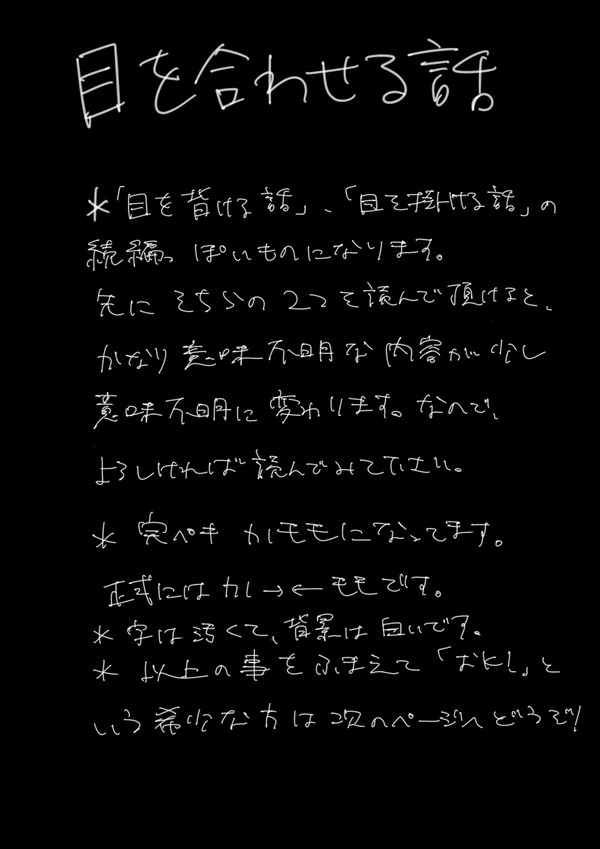 目を合わせる話
*「目を背ける話」、「目を掛ける話」の
続編っぽいものになります。
先にそちらの2つを読んで頂けると、
かなり意味不明な内容が少し
意味不明に変わります。なので、
よろしければ読んでみて下さい。
* 完ペキカルモモになってます。
正式にはカル→←モモです。
* 字は汚くて、背景は白いです。
* 以上の事をふまえて「おK!」と
いう希少な方は次のページへどうぞ!